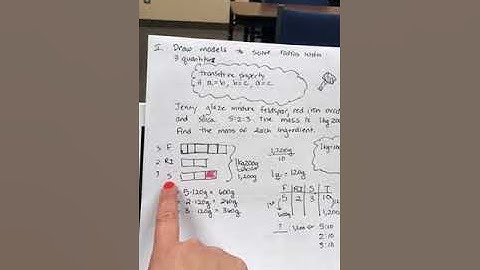 I. Draw models to solve ratios with
3 quantities
transitive property
if a=b, b=c, a=c
Jenny glaze mixture feldspar, red iron
and silica 5:2:3. The mass is 1kg 200
Find the mass of each ingredient.
F
2 RI
3 S
1kg 200g
1,200g
1,200g
10
1u = 120g
5·120g = 600g
= 2·120g = 240g
= 3·120g = 360g
F RI S T
5 2 3 10
5:10
2:10
3:10